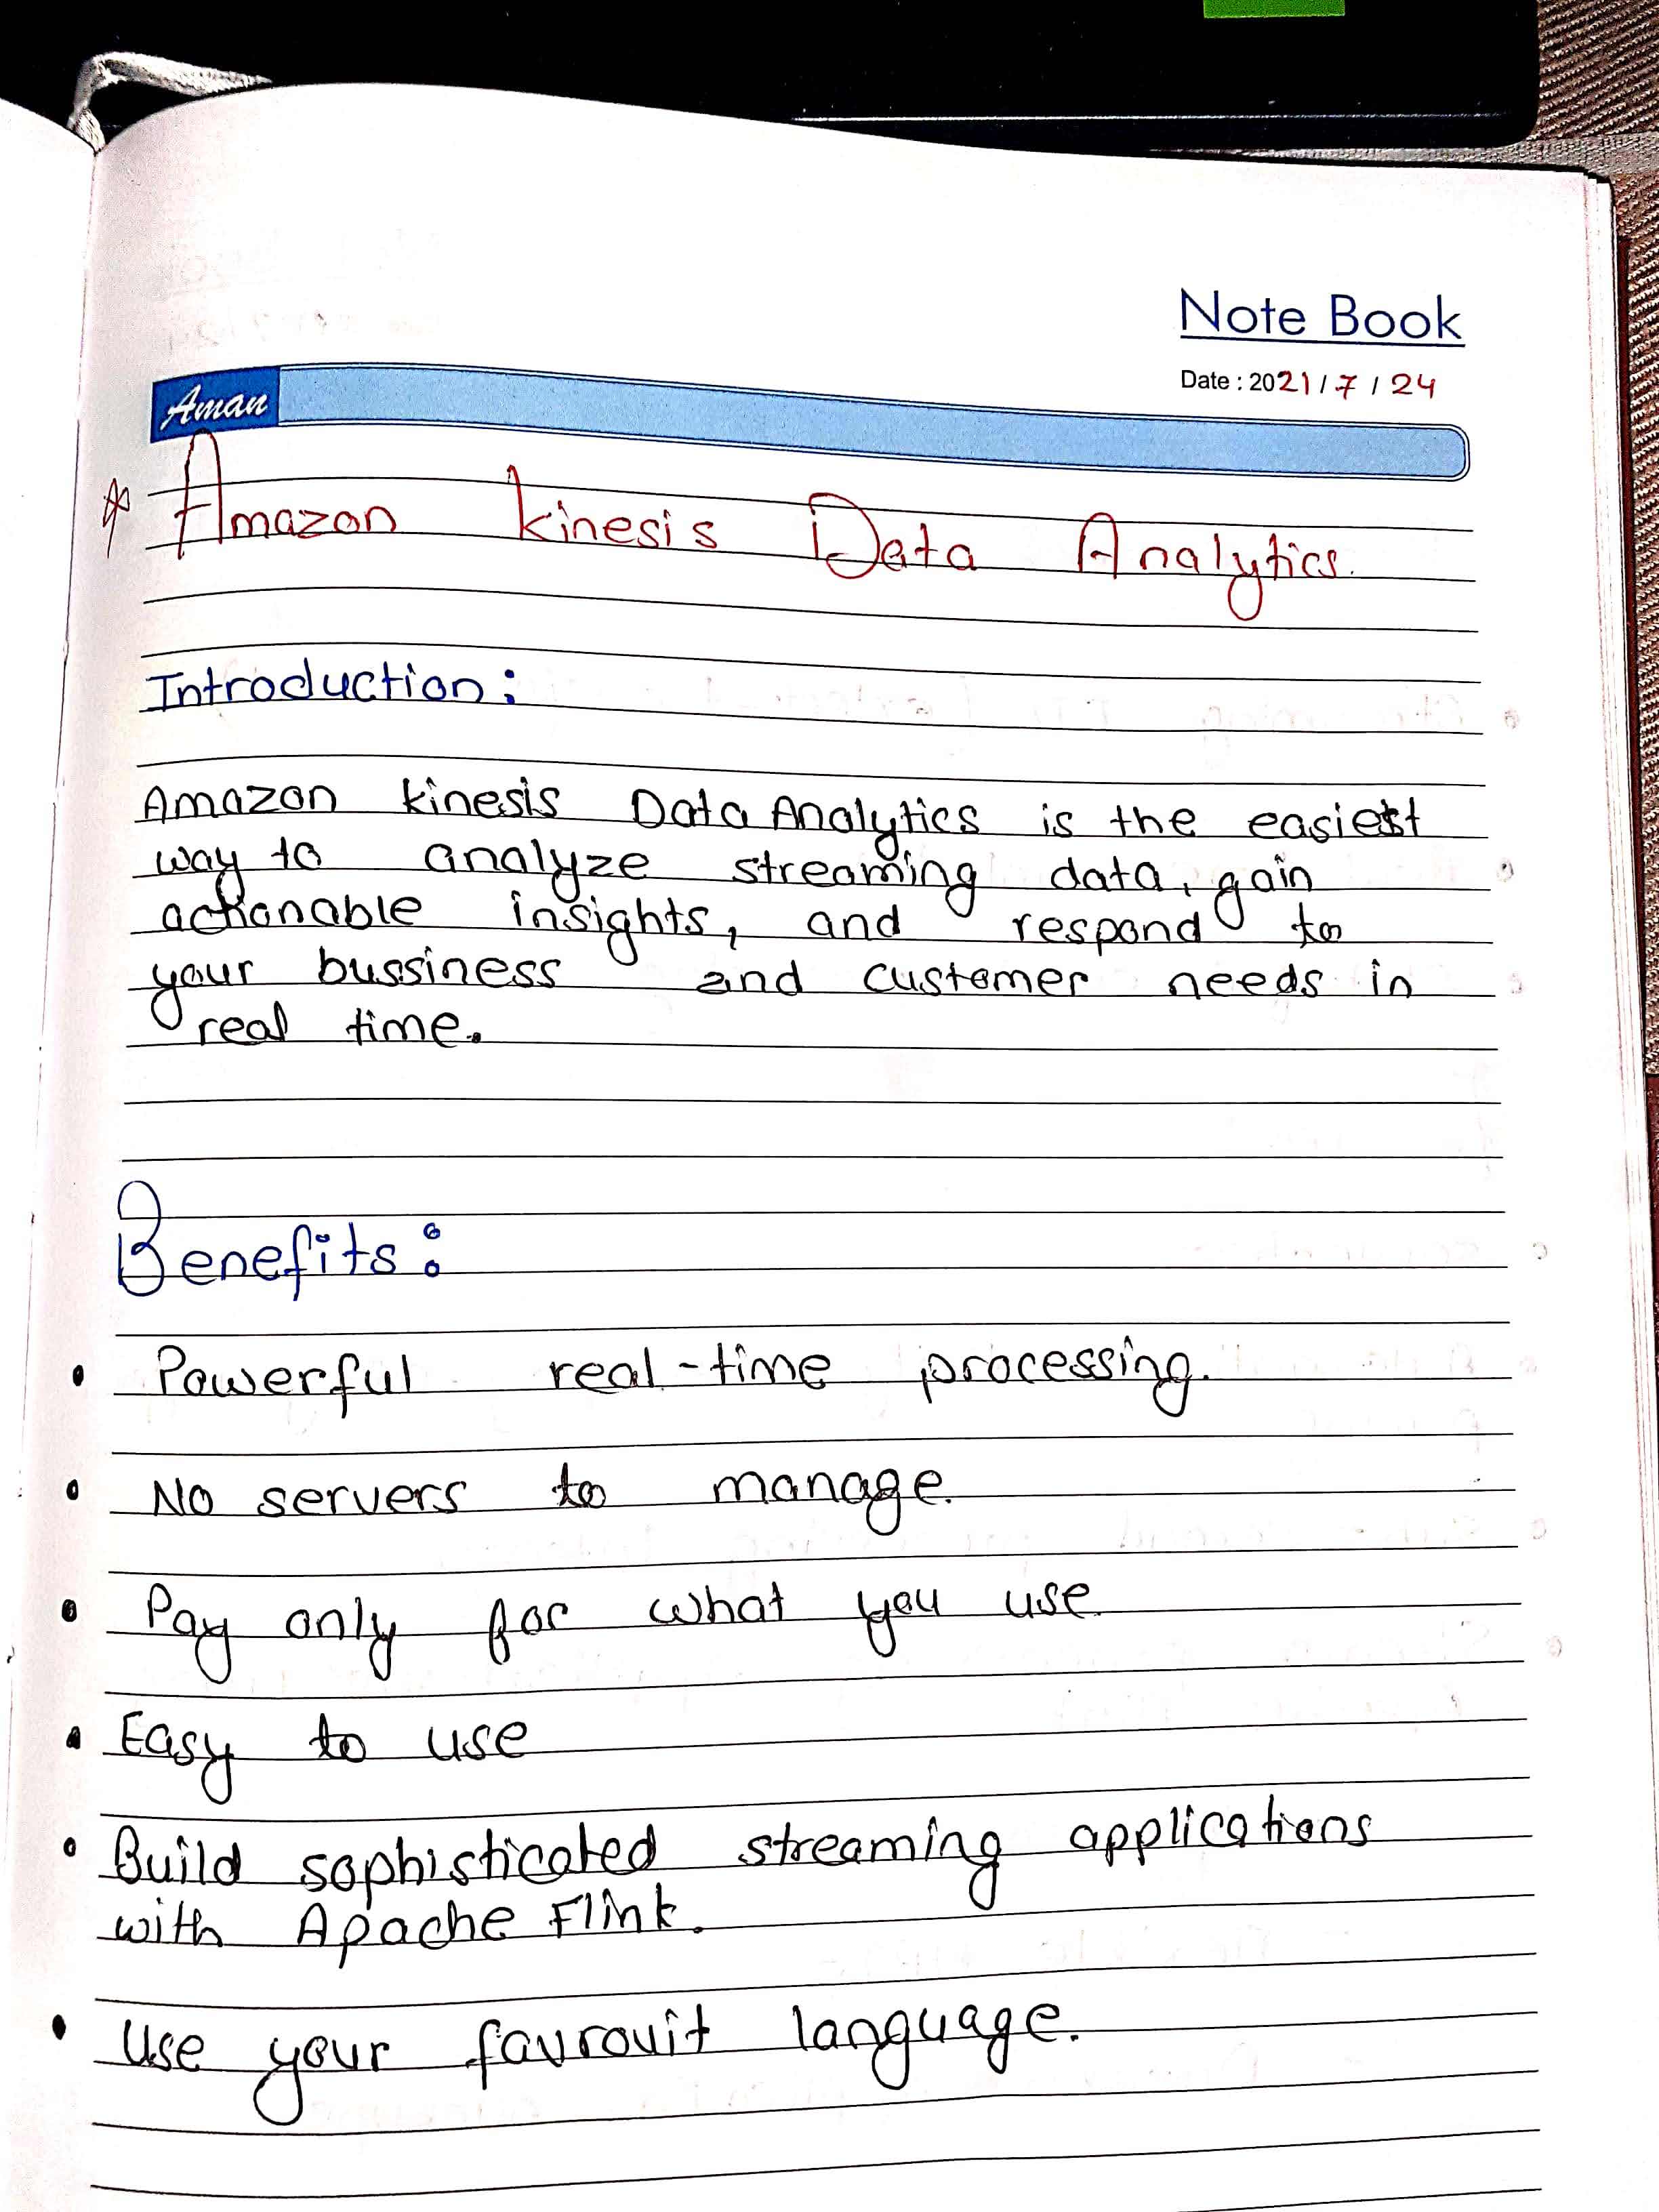 Note Book
Date : 2021 / 7 / 24
Aman
* Amazon Kinesis Data Analytics.
Introduction :
Amazon Kinesis Data Analytics is the easiest
way to analyze streaming data, gain
actionable insights, and respond to
your bussiness and customer needs in
real time.
Benefits :
• Powerful real-time processing.
• No servers to manage.
• Pay only for what you use.
• Easy to use
• Build sophisticated streaming applications
with Apache Flink.
• Use your favrouit language.